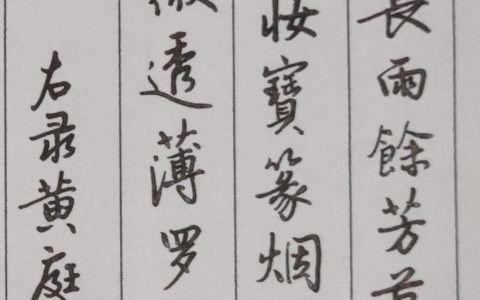 長雨餘芳
妆寶篆烟
透薄罗
右录黄庭